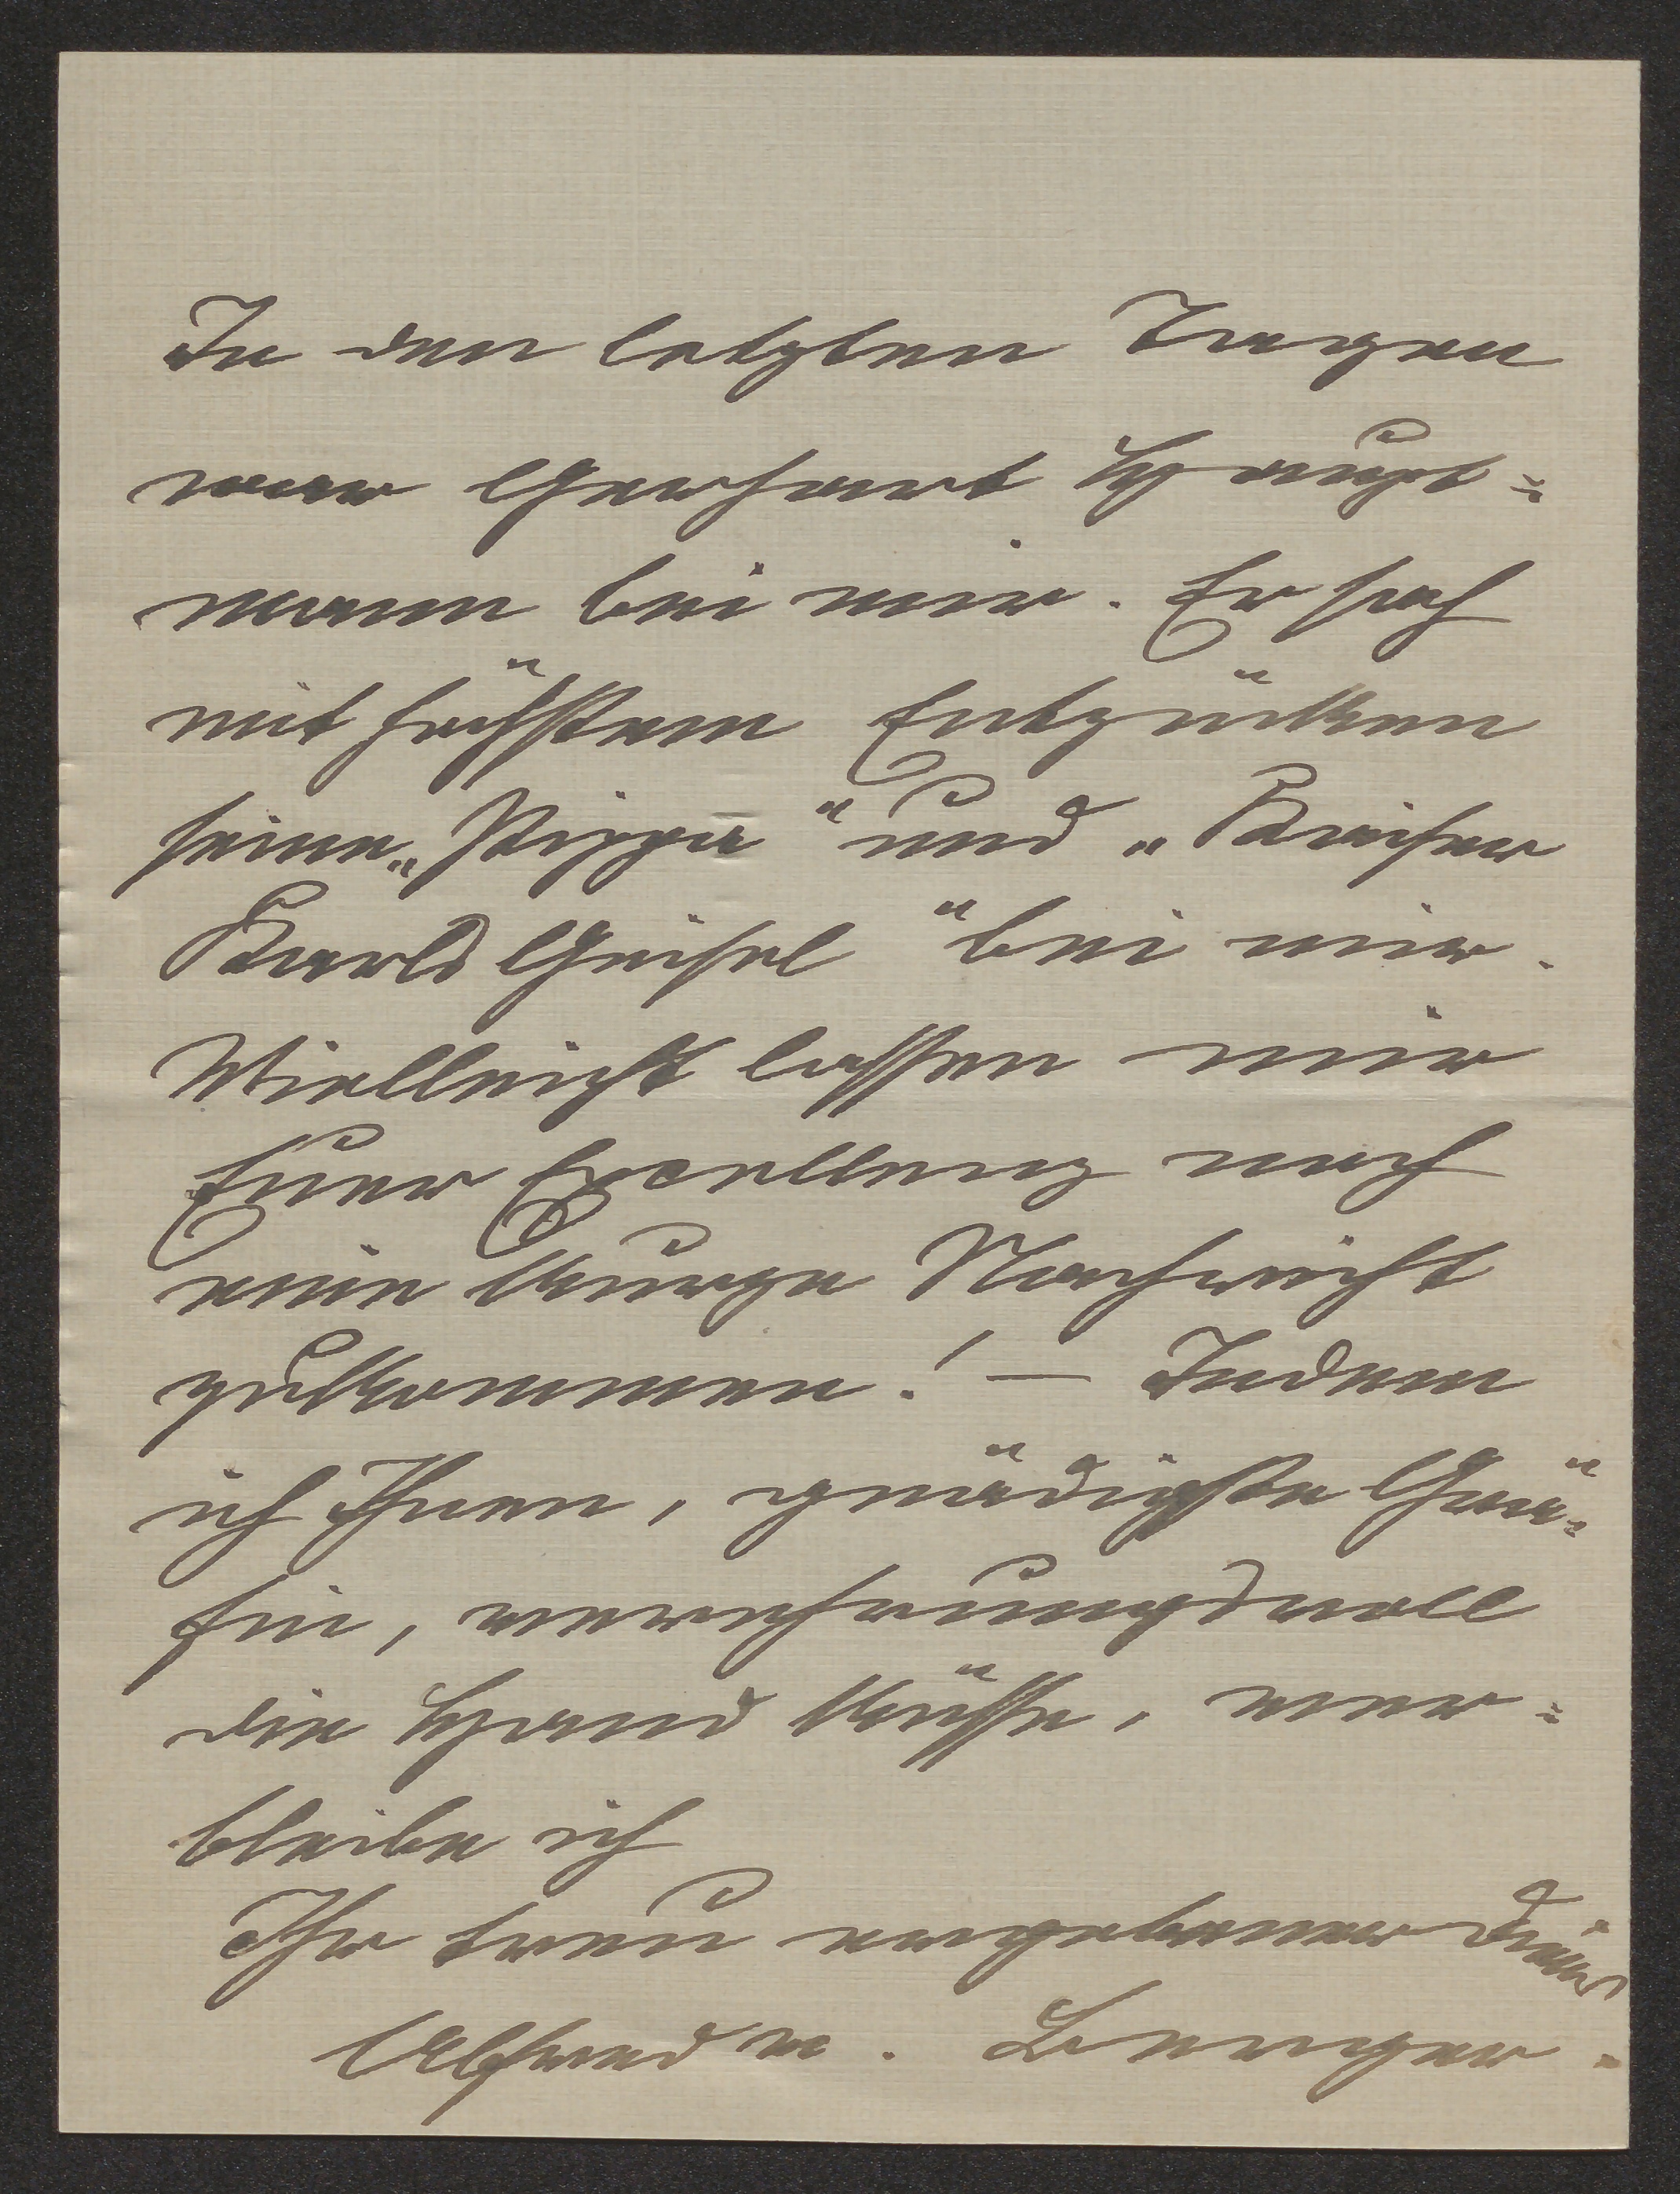 In den letzten Tagen
war Gerhart Haupt=
mann bei mir. Er sah
mit höchstem Entzücken
seine „Pippa" und „Kaiser
Karls Geisel" bei mir.
Vielleicht lassen mir
Euer Excellenz noch
eine kurze Nachricht
zukommen! – Indem
ich Ihnen, gnädigste Grä=
fin, verehrungsvoll
die Hand küsse, ver=
bleibe ich
Ihr treu ergebener Diener
Alfred v. Berger.